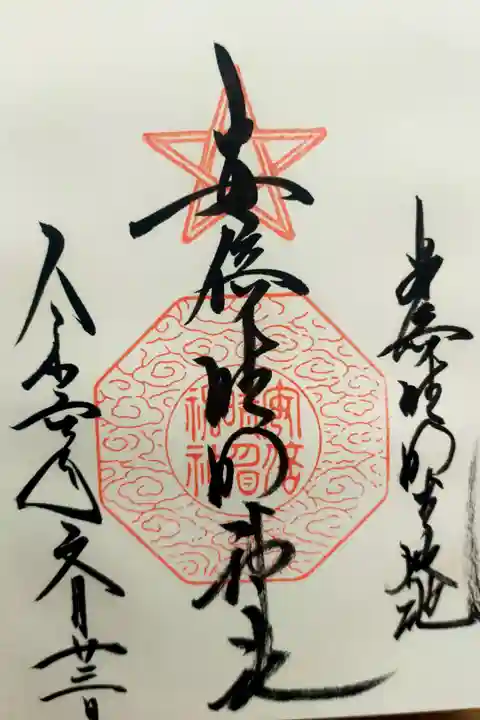 安倍晴明生誕地
安倍晴明神社
安倍
晴明
神社
令和年文月廿三日